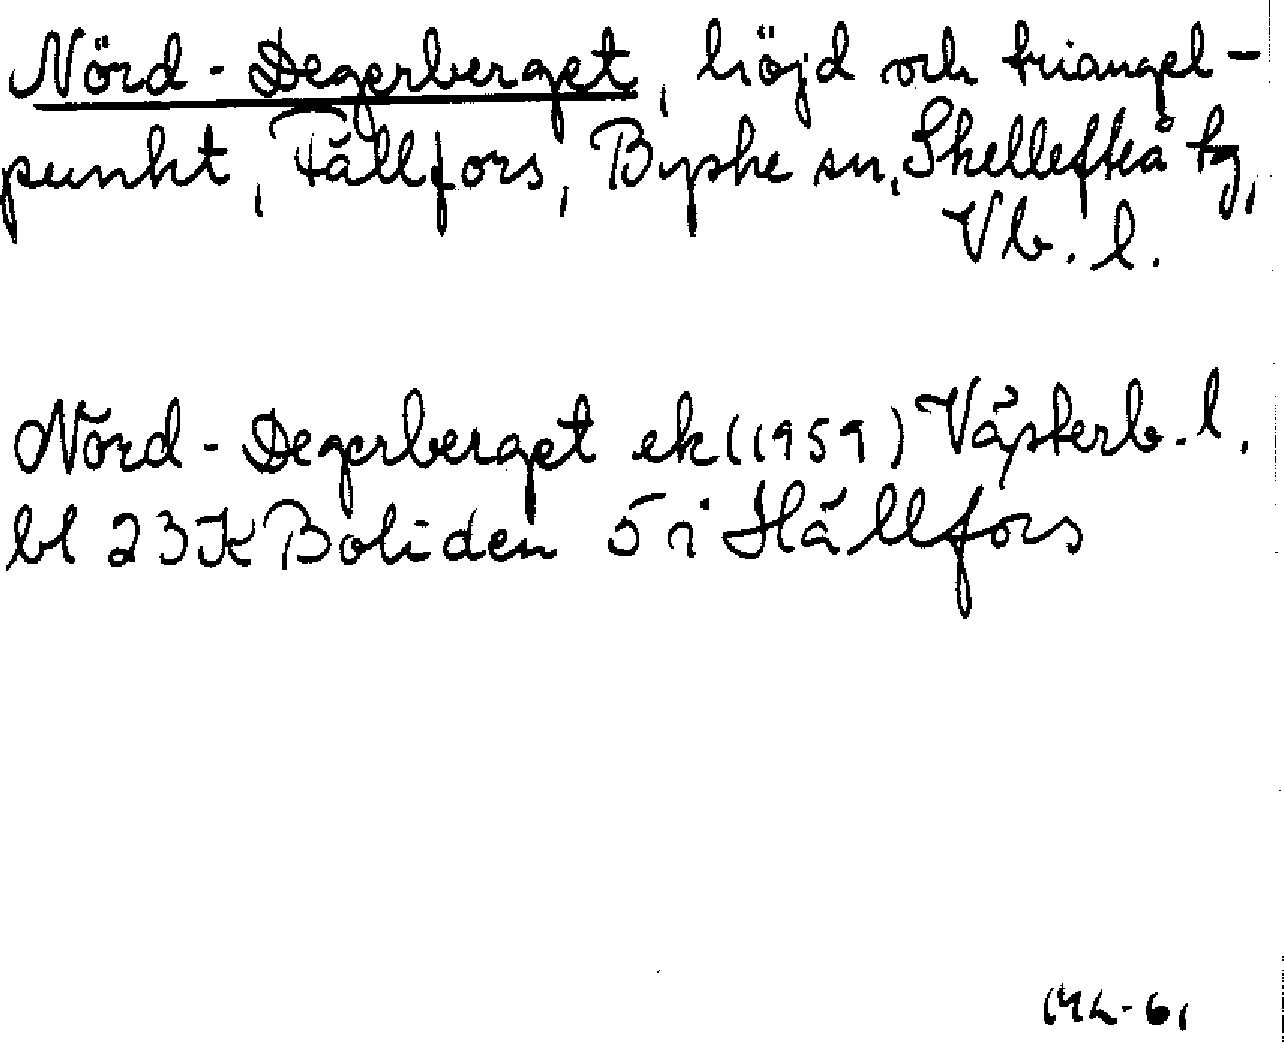 Nörd-Degerberget, höjd och triangel-
punkt, Fällfors, Byske sn, Skellefteå tg,
Vb. l.
Nörd-Degerberget ek (1959) Västerb. l.
bl 23K Boliden 5 i Hällfors
ML-61